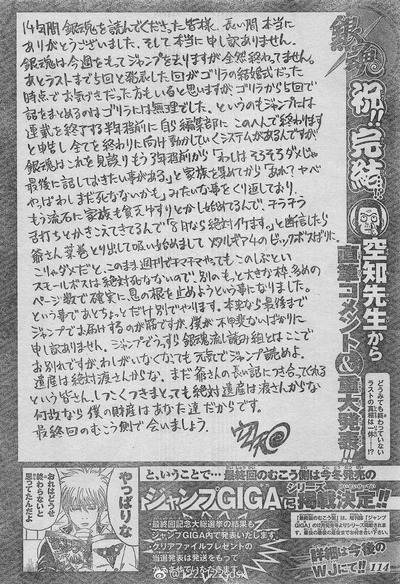 14年間 銀魂を読んでくださった皆様、長い間本当に
ありがとうございました。そして本当に申し訳ありません。
銀魂は今週をもってジャンプを去りますが全然終わってません。
あとラストまで5回と発表した回がゴリラの結婚式だった
時点でお気づきだった方もいると思いますが、ゴリラから5回で
話をまとめるのはゴリラには無理でした。というのもジャンプには
連載を終了する半年程前に自ら編集部に「この辺で終わります」
と申告し全てを終わりに向け動かしていくシステムがあるんですが
銀魂はこれを見誤りもう3年程前から「わしはそろそろダメじゃ
最後に話しておきたい事がある」と家族を集めてから「あれ?ヤベ
やっぱわしまだ死なないかも」みたいな事をくり返しており、
もう流石に家族も貧乏ゆすりとかし始めてるんで、そろそろ
舌打ちとかきこえてきてるんで「5日なら絶対イけます。」と断信したら
爺さん葉巻とり出して吸い始めまして メタルギア4のビッグボスばりに。
こりゃダメだと。このまま週刊でチマチマやってもこのしぶとい
スモールボスは絶対死なないので、別のもっと大きな枠、多めの
ページ数で確実に息の根を止めようという事になりました。
という事であとちょっとだけ別でやります。本来なら最後まで
ジャンプでお届けするのが筋ですが、僕が不甲斐ないばかりに
申し訳ありません。ジャンプでうっすら銀魂流し読み組とはここで
お別れですが、わしがいなくなっても元気でジャンプ読めよ。
遺産は絶対渡さんからな。まだ爺さんの長い話につき合ってくれる
という皆さん、しつこくつきまとっても絶対遺産は渡さないからな
何故なら僕の財産はあなた達だからです。
最終回のむこう側で会いましょう。
空知
銀魂
祝!!完結…?
空知先生から
直筆コメント&重大発表!!
どうみても終わっていない
ラストの真相は一体…!?
やっぱりな
おれはどうせ
終わらないと
思ってたんだよ
と、いうことで…最終回のむこう側は今冬発売の
ジャンプGIGAにシリーズ掲載決定!!
・最終回記念大総選挙の結果も
ジャンプGIGA内で発表いたします。
・クリアファイルプレゼントの
当選は発送をもって
詳細は今後の
W.J.にて!!
114
@1221223dsw